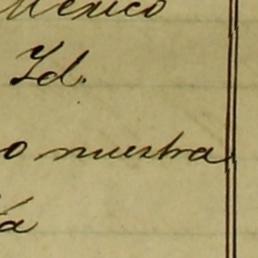 Mexico
Id.
o nuestra